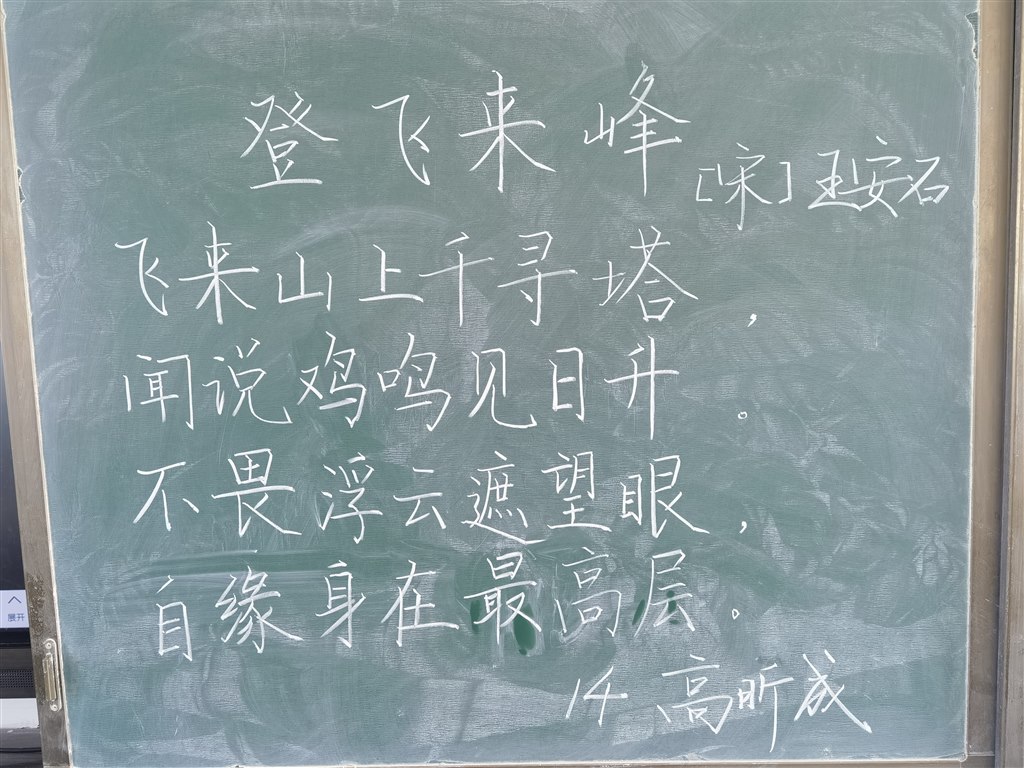 登飞来峰
[宋]王安石
飞来山上千寻塔，
闻说鸡鸣见日升。
不畏浮云遮望眼，
自缘身在最高层。
14 高昕成
展开